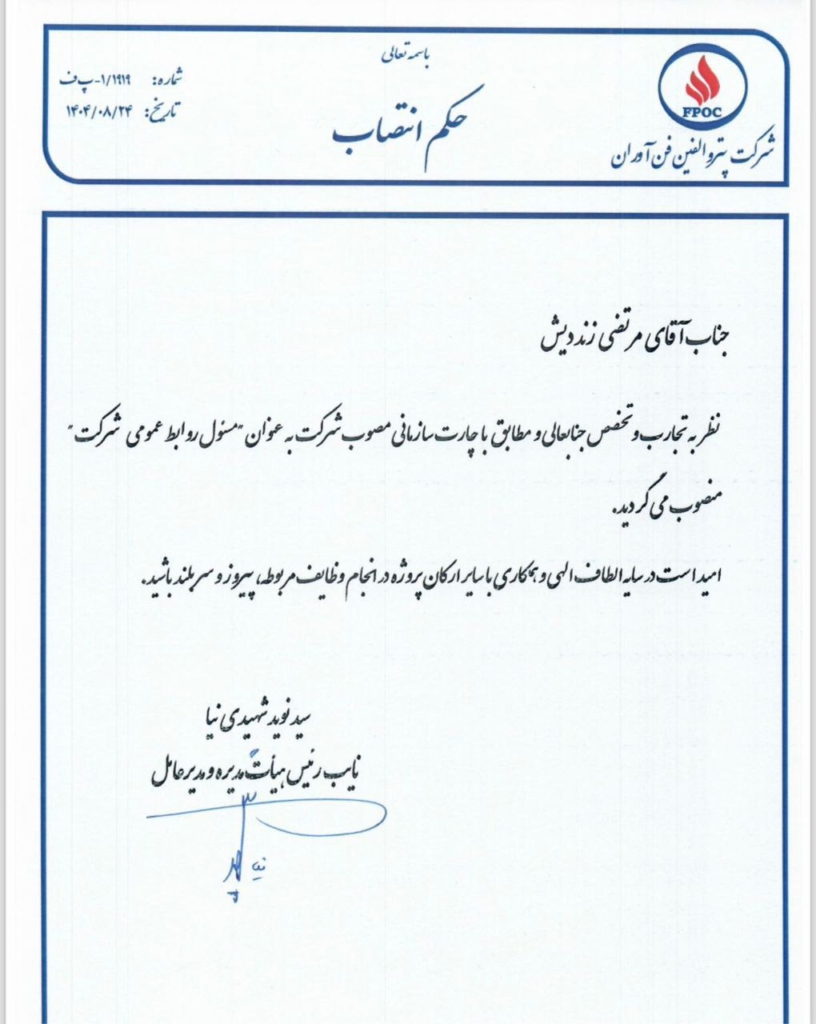 باسمه تعالی
حکم انتصاب
FPOC
شرکت پترو الفین فن آوران
شماره: ۱/۱۹۱۹-پ ف
تاریخ: ۱۴۰۴/۰۸/۲۴
جناب آقای مرتضی زنددیش
نظر به تجارب و تخصص جنابعالی و مطابق با چارت سازمانی مصوب شرکت به عنوان "مسئول روابط عمومی شرکت"
منصوب می گردید.
امید است در سایه الطاف الهی و همکاری با سایر ارکان پروژه در انجام وظایف مربوطه، پیروز و سربلند باشید.
سید نوید شهیدی نیا
نایب رئیس هیأت مدیره و مدیرعامل